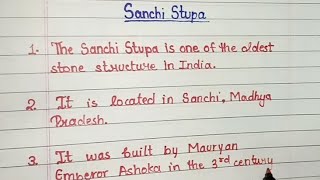 Sanchi Stupa
1. The Sanchi Stupa is one of the oldest
stone structure In India.
2. It is located in Sanchi, Madhya
Pradesh.
3. It was built by Mauryan
Emperor Ashoka in the 3rd century